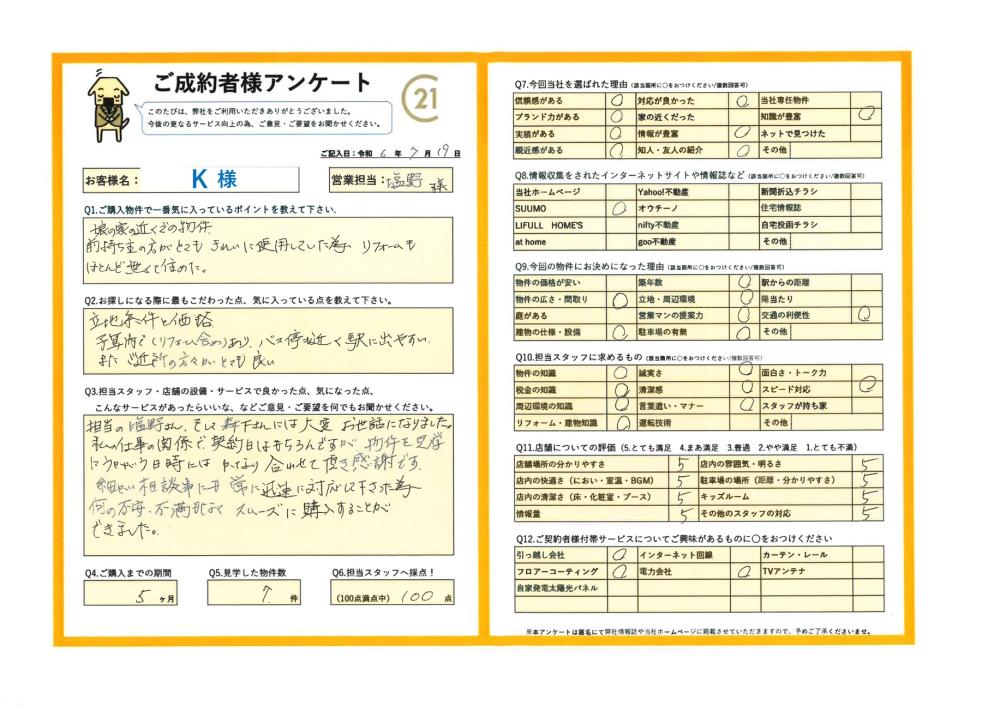 ご成約者様アンケート
このたびは、弊社をご利用いただきありがとうございました。
今後の更なるサービス向上の為、ご意見・ご要望をお聞かせください。
21
ご記入日：令和 6 年 7 月 19 日
お客様名： K 様
営業担当：塩野 様
Q1.ご購入物件で一番気に入っているポイントを教えて下さい.
娘の家の近くでの物件
前持ち主の方がとても きれいに使用していた為 リフォームも
ほとんど無くて住めた。
Q2.お探しになる際に最もこだわった点、気に入っている点を教えて下さい。
立地条件と価格
予算内で(リフォーム含め)あり、バス停も近く駅に出やすい.
またご近所の方々がとても良い
Q3.担当スタッフ・店舗の設備・サービスで良かった点、気になった点、
こんなサービスがあったらいいな、などご意見・ご要望を何でもお聞かせください。
担当の塩野さん、そして森下さんには大変 お世話になりました。
私の仕事の関係で契約日はもちろんですが 物件を見学
日時には かなり 合わせて頂き感謝です.
細かい相談事にも 常に迅速に対応して下さった為
何の不安・不満もなく スムーズに購入することが
できました。
Q4.ご購入までの期間
5 ヶ月
Q5.見学した物件数
7 件
Q6.担当スタッフへ採点！
(100点満点中) 100 点
Q7.今回当社を選ばれた理由（該当箇所に○をおつけください/複数回答可）
信頼感がある ○ 対応が良かった ○ 当社専任物件
ブランド力がある ○ 家の近くだった 知識が豊富 ○
実績がある ○ 情報が豊富 ○ ネットで見つけた
親近感がある ○ 知人・友人の紹介 ○ その他
Q8.情報収集をされたインターネットサイトや情報誌など（該当箇所に○をおつけください/複数回答可）
当社ホームページ Yahoo!不動産 新聞折込チラシ
SUUMO ○ オウチーノ 住宅情報誌
LIFULL HOME'S nifty不動産 自宅投函チラシ
at home goo不動産 その他
Q9.今回の物件にお決めになった理由（該当箇所に○をおつけください/複数回答可）
物件の価格が安い 築年数 ○ 駅からの距離
物件の広さ・間取り ○ 立地・周辺環境 ○ 陽当たり
庭がある 営業マンの提案力 ○ 交通の利便性 ○
建物の仕様・設備 ○ 駐車場の有無 ○ その他
Q10.担当スタッフに求めるもの（該当箇所に○をおつけください/複数回答可）
物件の知識 ○ 誠実さ ○ 面白さ・トーク力
税金の知識 ○ 清潔感 ○ スピード対応 ○
周辺環境の知識 ○ 言葉遣い・マナー ○ スタッフが持ち家
リフォーム・建物知識 ○ 運転技術 その他
Q11.店舗についての評価（5.とても満足 4.まあ満足 3.普通 2.やや満足 1.とても不満）
店舗場所の分かりやすさ 5 店内の雰囲気・明るさ 5
店内の快適さ（におい・室温・BGM） 5 駐車場の場所（距離・分かりやすさ） 5
店内の清潔さ（床・化粧室・ブース） 5 キッズルーム 5
情報量 5 その他のスタッフの対応 5
Q12.ご契約者様付帯サービスについてご興味があるものに○をおつけください
引っ越し会社 ○ インターネット回線 カーテン・レール
フロアーコーティング ○ 電力会社 ○ TVアンテナ
自家発電太陽光パネル
※本アンケートは匿名にて弊社情報誌や当社ホームページに掲載させていただきますので、予めご了承くださいませ。